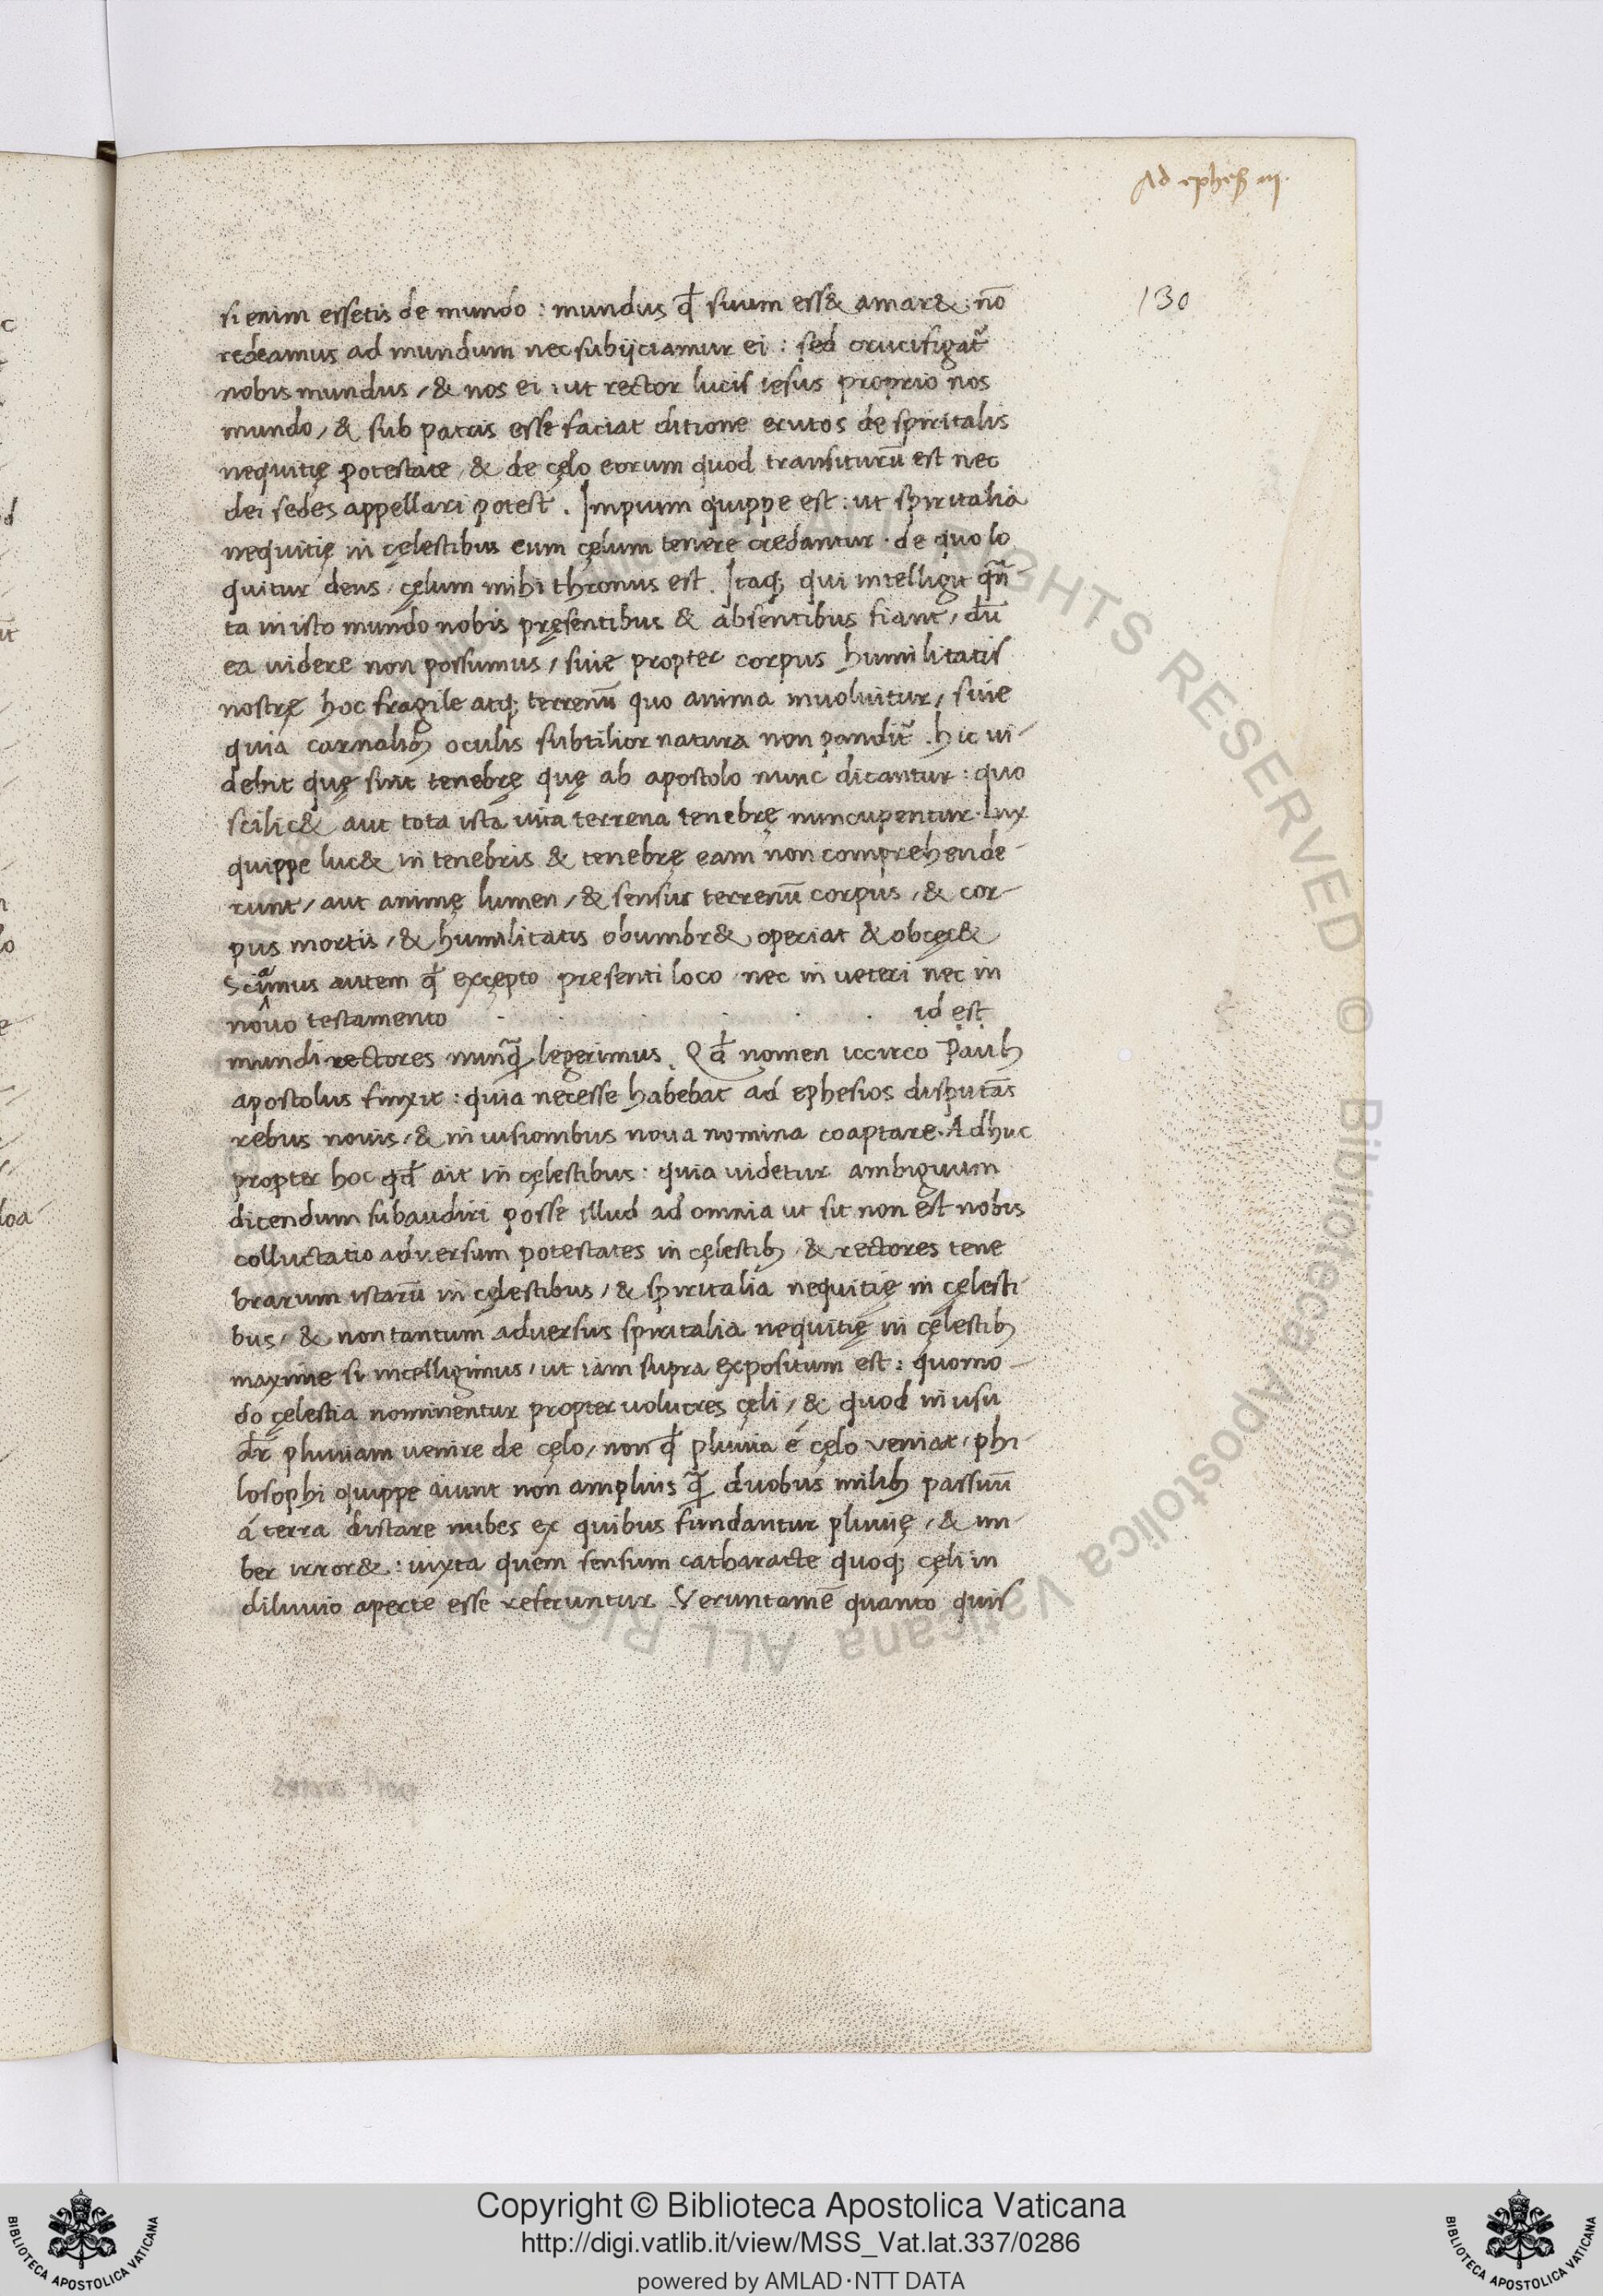 Ad ephes iij.
130
si enim essetis de mundo : mundus qđ suum ess& amar& : nō
redeamus ad mundum nec subijciamur ei : sed crucifigat᷑
nobis mundus / & nos ei : ut rector lucis iesus proprio nos
mundo / & sub patris esse faciat ditione erutos de spiritalis
nequitię potestate / & de cęlo eorum quod transiturū est nec
dei sedes appellari potest . Impium quippe est : ut spiritalia
nequitię in cęlestibus eum cęlum tenere credantur . de quo lo
quitur deus / cęlum mihi thronus est . Itaq; qui intelligit qñ
ta in isto mundo nobis pręsentibus & absentibus fiant / dū
ea uidere non possumus / siue propter corpus humilitatis
nostrę hoc fragile atq; terrenū quo anima inuoluitur / siue
quia carnalibꝫ oculis subtilior natura non pandit᷑ . hic ui-
debit quę sint tenebrę quę ab apostolo nunc dicantur : quo
scilic& aut tota ista uita terrena tenebrę nuncupentur . Lux
quippe luc& in tenebris & tenebrę eam non comprehende-
runt / aut animę lumen / & sensus terrenū corpus / & cor-
pus mortis / & humilitatis obumbr& operiat & obcęc&
Sciamus autem qđ excępto presenti loco nec in ueteri nec in
nouo testamento . . . . . . id est
mundi rectores nunq̃ legerimus . Qđ nomen iccirco Paulꝫ
apostolus finxit : quia necesse habebat ad ephesios disputās
rebus nouis / & in uisionibus noua nomina coaptare . Adhuc
propter hoc qđ ait in cęlestibus : quia uidetur ambiguum
dicendum subaudiri posse illud ad omnia ut sit non est nobis
colluctatio adversum potestates in cęlestibꝫ / & rectores tene
brarum istarū in cęlestibus / & spiritalia nequitię in cęlesti-
bus / & non tantum adversus spiritalia nequitię in cęlestibꝫ
maxime si intelligimus / ut iam supra expositum est : quomo-
do cęlestia nominentur propter uolucres cęli / & quod in usu
dr̄ pluuiam uenire de cęlo / non qđ pluuia é cęlo veniat / phi-
losophi quippe aiunt non amplius q̃ duobus milibꝫ passuū
á terra distare nubes ex quibus fundantur pluuię / & im-
ber irror& : iuxta quem sensum catharacte quoq; cęli in
diluuio aperte esse referuntur . Veruntamē quanto quis
Copyright © Biblioteca Apostolica Vaticana
http://digi.vatlib.it/view/MSS_Vat.lat.337/0286
powered by AMLAD·NTT DATA